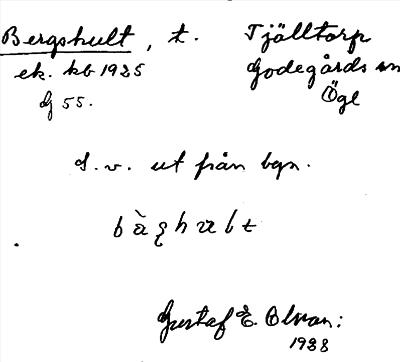 Bergshult, t. Tjälltorp
ek. kb 1925 Godegårds sn
G 55. Ögl
S. v. ut från byn.
Gustaf E. Olson:
1938